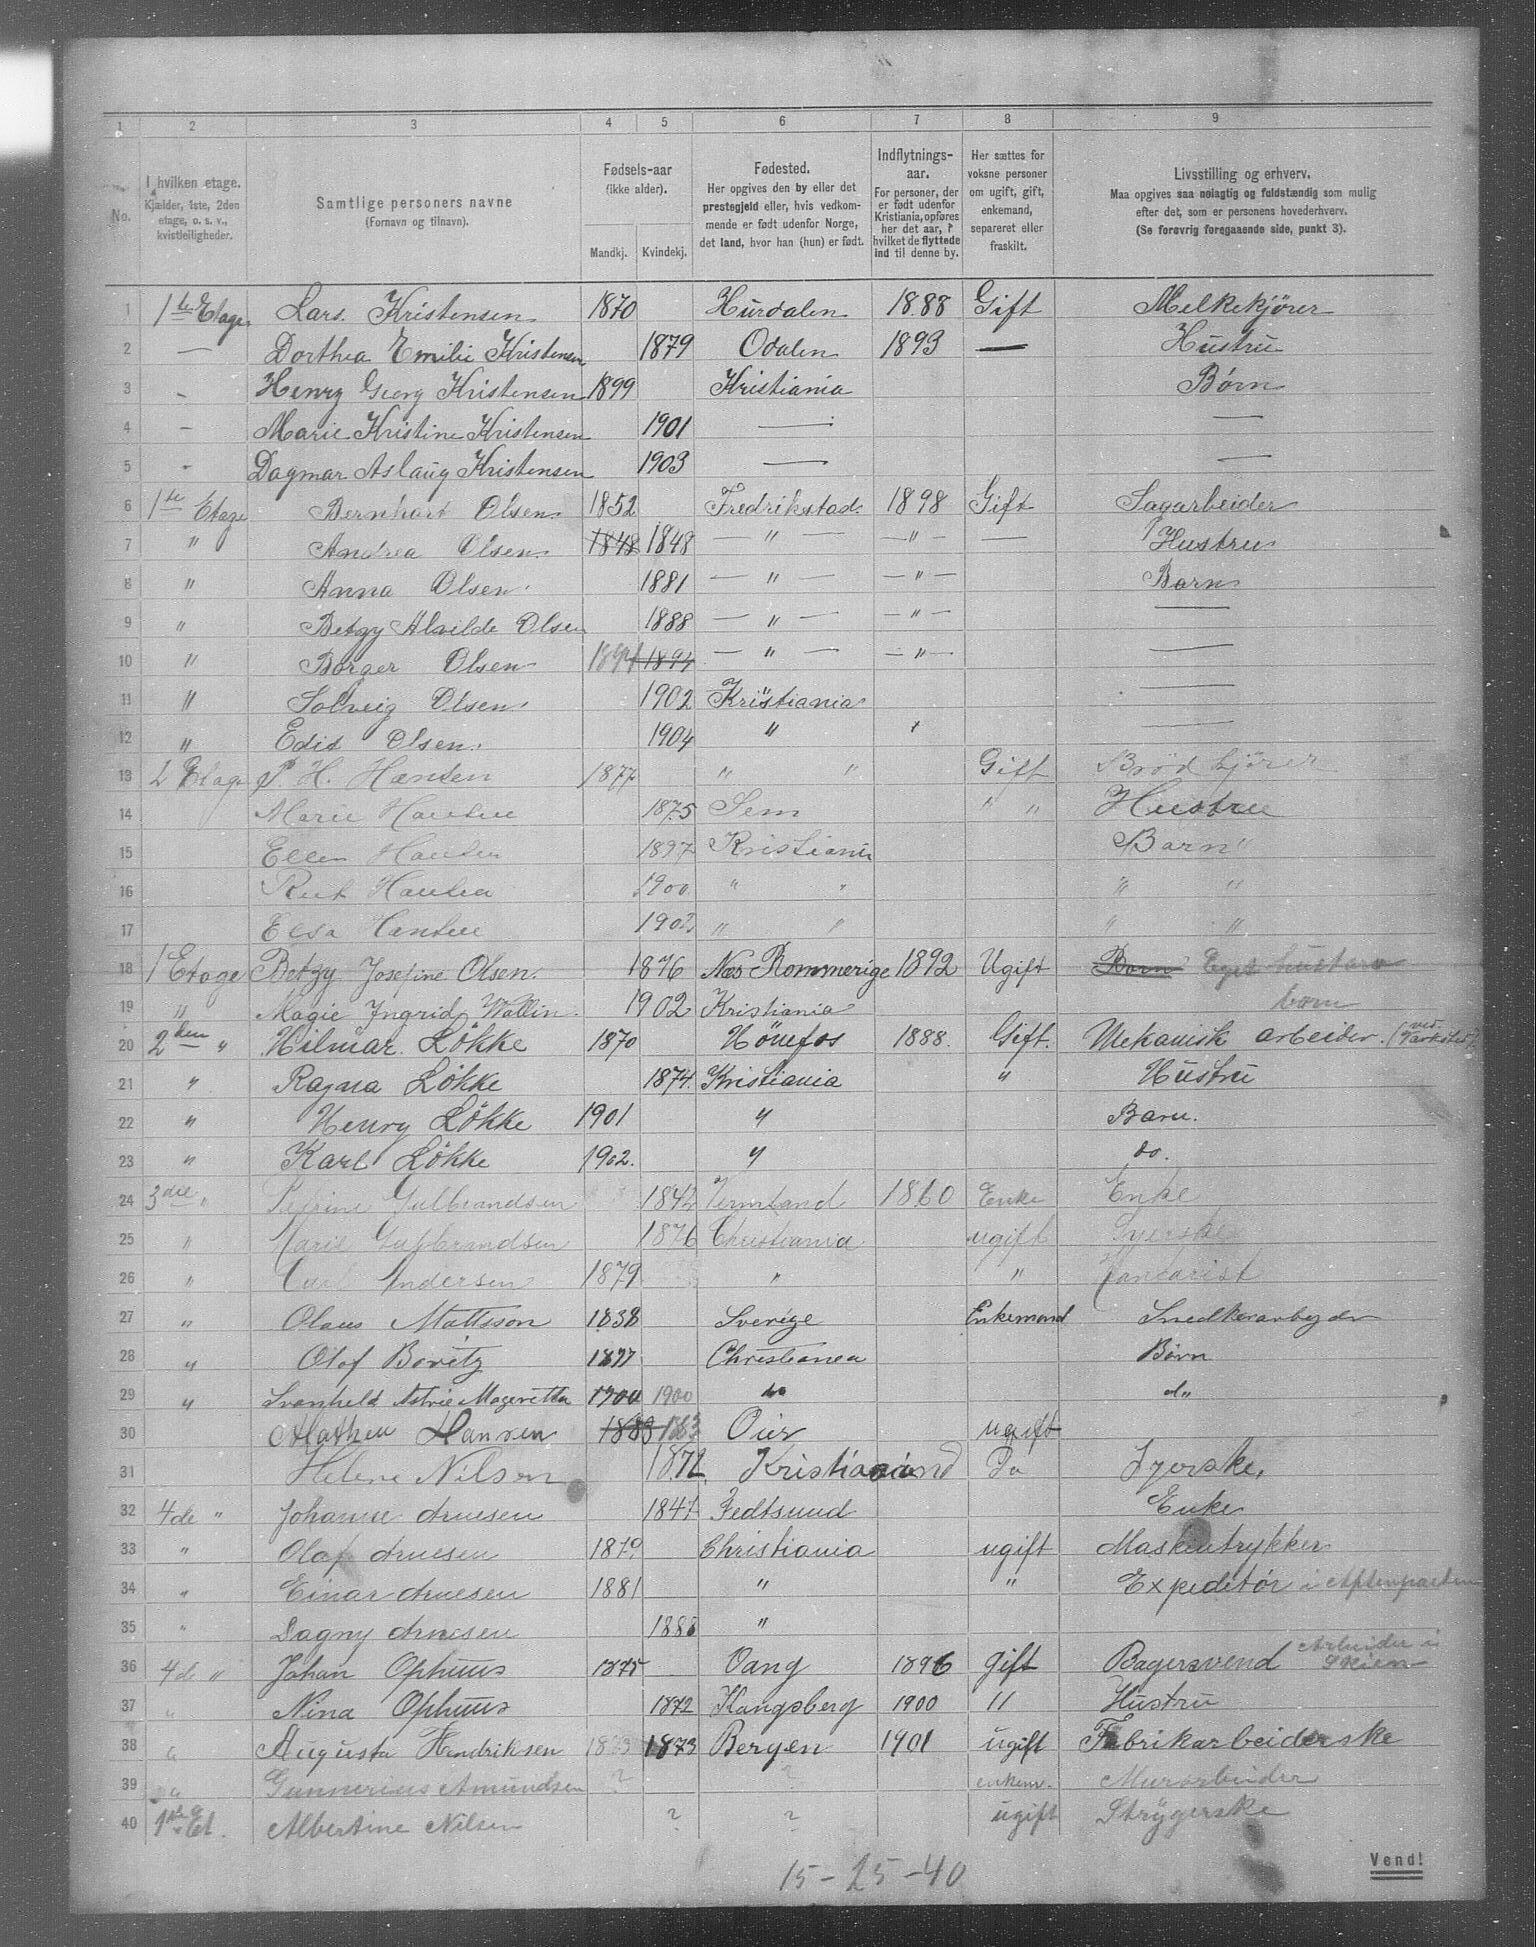 1 2 3 4 5 6 7 8 9
No. I hvilken etage. Kjælder, 1ste, 2den etage, o. s. v., kvistleiligheder. Samtlige personers navne (Fornavn og tilnavn). Fødsels-aar (ikke alder). Mandkj. Kvindekj. Fødested. Her opgives den by eller det prestegjeld eller, hvis vedkommende er født udenfor Norge, det land, hvor han (hun) er født. Indflytnings-aar. For personer, der er født udenfor Kristiania, opføres her det aar, i hvilket de flyttede ind til denne by. Her sættes for voksne personer om ugift, gift, enkemand, separeret eller fraskilt. Livsstilling og erhverv. Maa opgives saa nøiagtig og fuldstændig som mulig efter det, som er personens hovederhverv. (Se forøvrig foregaaende side, punkt 3).
1 1te Etage Lars Kristensen 1870 Hurdalen 1888 Gift Melkekjører
2 — Dorthea Emilie Kristensen 1879 Odalen 1893 — Hustru
3 - Henry Georg Kristensen 1899 Kristiania Børn
4 - Marie Kristine Kristensen 1901 — —
5 - Dagmar Aslaug Kristensen 1903 — —
6 1te Etage Bernhart Olsen 1852 Fredrikstad 1898 Gift Sagarbeider
7 " Andrea Olsen 1848 1848 — " — — " — — Hustru
8 " Anna Olsen 1881 — " — — " — Barn
9 " Betzy Alvilde Olsen 1888 — " — — " — —
10 " Borger Olsen 1894 1894 — " — — " — —
11 " Solveig Olsen 1902 Kristiania —
12 " Edit Olsen 1904 " —
13 2 Etage P. H. Hansen 1877 " " Gift Brød kjører
14 Marie Hansen 1875 Sem " " Hustru
15 Ellen Hansen 1897 Kristiania Barn "
16 Rut Hansen 1900 " " " "
17 Elsa Hansen 1902 " " " "
18 1 Etage Betzy Josefine Olsen 1876 Nes Rommerige 1892 Ugift Barn Eget hustavn
19 " Magie Ingrid Wallin 1902 Kristiania born
20 2den " Hilmar Løkke 1870 Hønefos 1888 Gift. Mekanisk arbeider. (ved Værksted)
21 " Ragna Løkke 1874 Kristiania " Hustru
22 " Henry Løkke 1901 " Barn.
23 " Karl Løkke 1902. " do.
24 3die " Petrine Gulbrandsen 1842 Vermland 1860 Enke Enke
25 " Marie Gulbrandsen 1876 Christiania ugift Syerske
26 " Carl Andersen 1879 " "
27 " Olaus Mattsson 1838 Sverige Enkemand Snedkerarbeyder
28 " Olof Boritz 1877 Christianea Børn
29 " Svanhild Astrie Mageretta 1900 1900 do do
30 Mathea Hansen 1883 1883 Oier ugift
31 Helene Nilsen 1872 Kristiansand Do Syerske,
32 4de " Johanne Arnesen 1847 Fedtsund Enke
33 " Olaf Arnesen 1879 Christiania ugift Maskintrykker
34 " Einar Arnesen 1881 " " Expeditør i Aftenposten
35 " Dagny Arnesen 1888 "
36 4de " Johan Ophuus 1875 Vang 1896 gift Bagersvend Arbeider i Skien
37 " Nina Ophuus 1872 Kongsberg 1900 " Hustru
38 " Augusta Hendriksen 1873 1873 Bergen 1901 ugift Fabrikarbeiderske
39 " Gunnerius Amundsen ? ? enkem. Murarbeider
40 1ste Et. Albertine Nilsen ? ? ugift Strygerske
15 - 25 - 40
Vend!